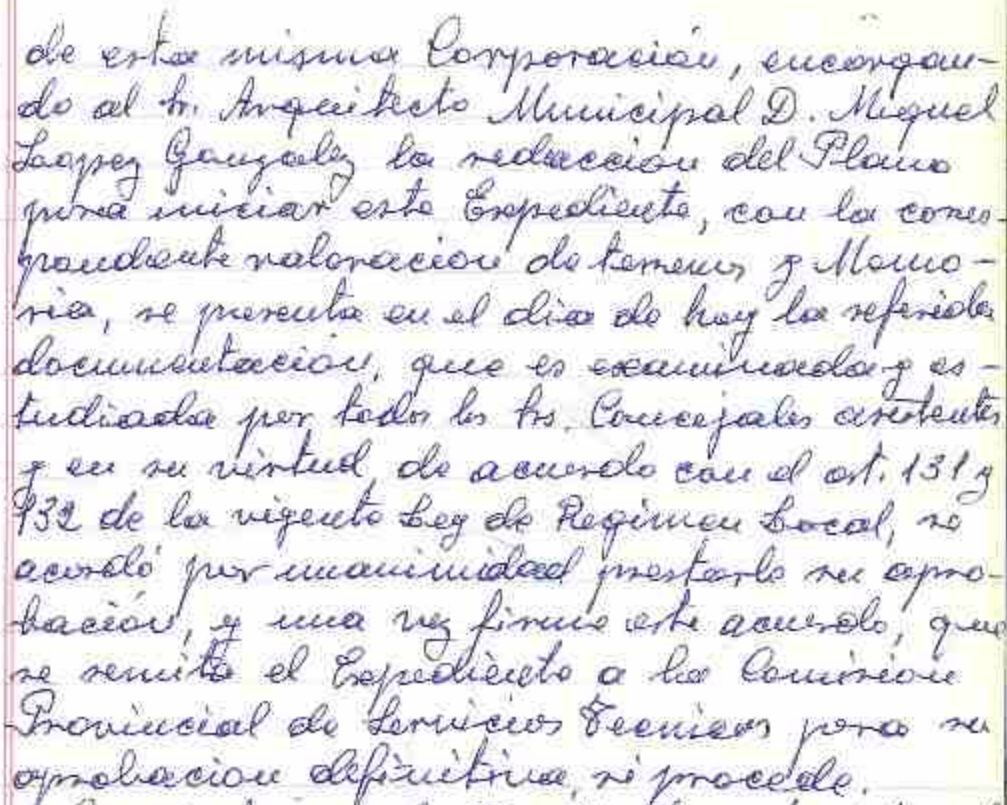 de esta misma Corporación, encargan-
do al Sr. Arquitecto Municipal D. Miguel
Loopez Gonzalez la redaccion del Plano
para iniciar este Expediente, con la corres-
pondiente valoracion de terrenos y Memo-
ria, se presenta en el dia de hoy la referida
documentación, que es examinada y es-
tudiada por todos los Srs. Concejales asistentes
y en su virtud, de acuerdo con el art. 131 y
132 de la vigente Ley de Regimen Local, se
acordó por unanimidad prestarle su apro-
bación, y una vez firme este acuerdo, que
se remita el Expediente a la Comision
Provincial de Servicios Tecnicos para su
aprobacion definitiva, si procede.